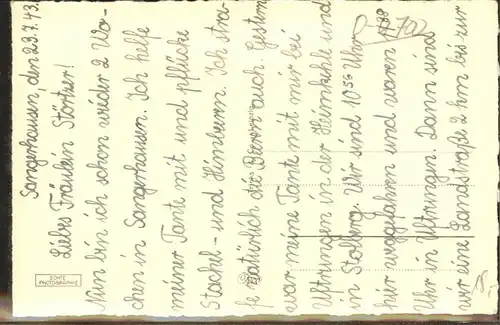 Sangerhausen, den 23.7.43.
Liebes Fräulein Störtzer!
Nun bin ich schon wieder 2 Wo-
chen in Sangerhausen. Ich helfe
meiner Tante mit und pflücke
Stachel- und Himbeern. Ich stra-
fe natürlich die Beeren auch. Gestern
war meine Tante mit mir bei
Uftrungen in der Heimkehle und
in Stolberg. Wir sind 10⁵⁶ Uhr
hier weggefahren und waren
Uhr in Uftrungen. Dann sind
wir eine Landstraße 2 km bis zur
ECHTE
PHOTOGRAPHIE